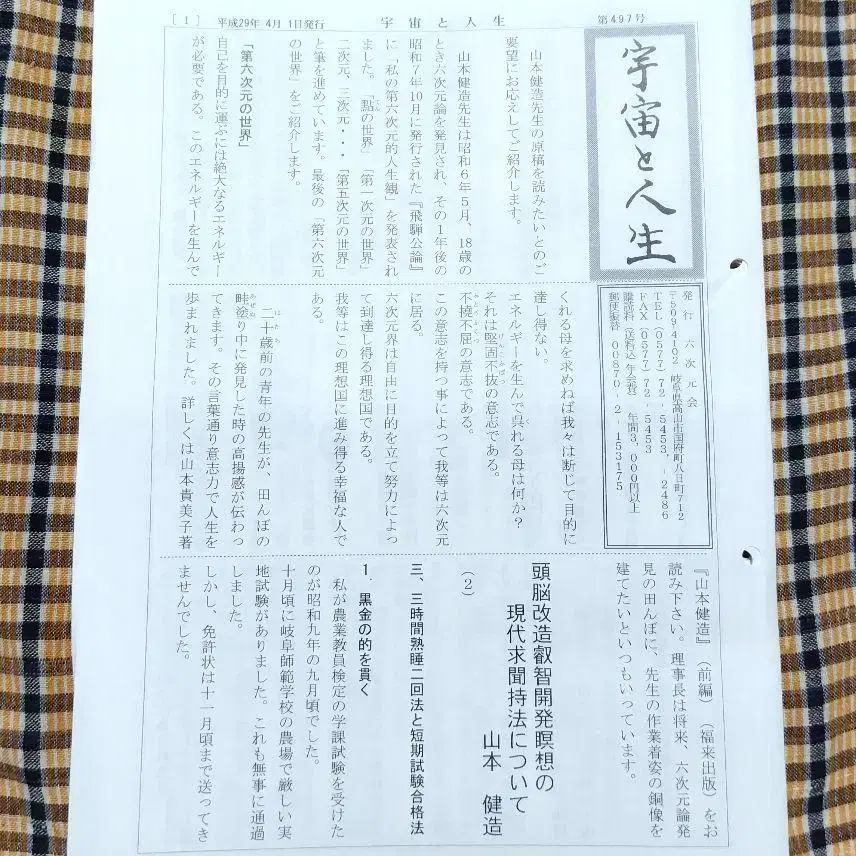 ［１］ 平成29年 4月 1日発行 宇宙と人生 第497号
宇宙と人生
発行 六次元会
〒509-4102 岐阜県高山市国府町八日町712
TEL (0577) 72-5453, -2486
FAX (0577) 72-5453
購読料 (送料込) 年会費) 年間3,000円以上
郵便振替 00870-2-153175
山本健造先生の原稿を読みたいとのご
要望にお応えしてご紹介します。
山本健造先生は昭和６年５月、18歳の
とき六次元論を発見され、その１年後の
昭和７年10月に発行された『飛騨公論』
に「私の第六次元的人生観」を発表され
ました。「點の世界」「第一次元の世界」
二次元、三次元・・・「第五次元の世界」
と筆を進めています。最後の「第六次元
の世界」をご紹介します。
「第六次元の世界」
自己を目的に運ぶには絶大なるエネルギー
が必要である。このエネルギーを生んで
くれる母を求めねば我々は断じて目的に
達し得ない。
エネルギーを生んで呉れる母は何か？
それは堅固不抜の意志である。
不撓不屈の意志である。
この意志を持つ事によって我等は六次元
に居る。
六次元界は自由に目的を立て努力によっ
て到達し得る理想国である。
我等はこの理想国に進み得る幸福な人で
ある。
二十歳前の青年の先生が、田んぼの
畦塗り中に発見した時の高揚感が伝わっ
てきます。その言葉通り意志力で人生を
歩まれました。詳しくは山本貴美子著
『山本健造』（前編）（福来出版）をお
読み下さい。理事長は将来、六次元論発
見の田んぼに、先生の作業着姿の銅像を
建てたいといつもいっています。
頭脳改造叡智開発瞑想の
現代求聞持法について
山本 健造
（２）
三、三時間熟睡二回法と短期試験合格法
１．黒金の的を貫く
私が農業教員検定の学課試験を受けた
のが昭和九年の九月頃でした。
十月頃に岐阜師範学校の農場で厳しい実
地試験がありました。これも無事に通過
しました。
しかし、免許状は十一月頃まで送ってき
ませんでした。